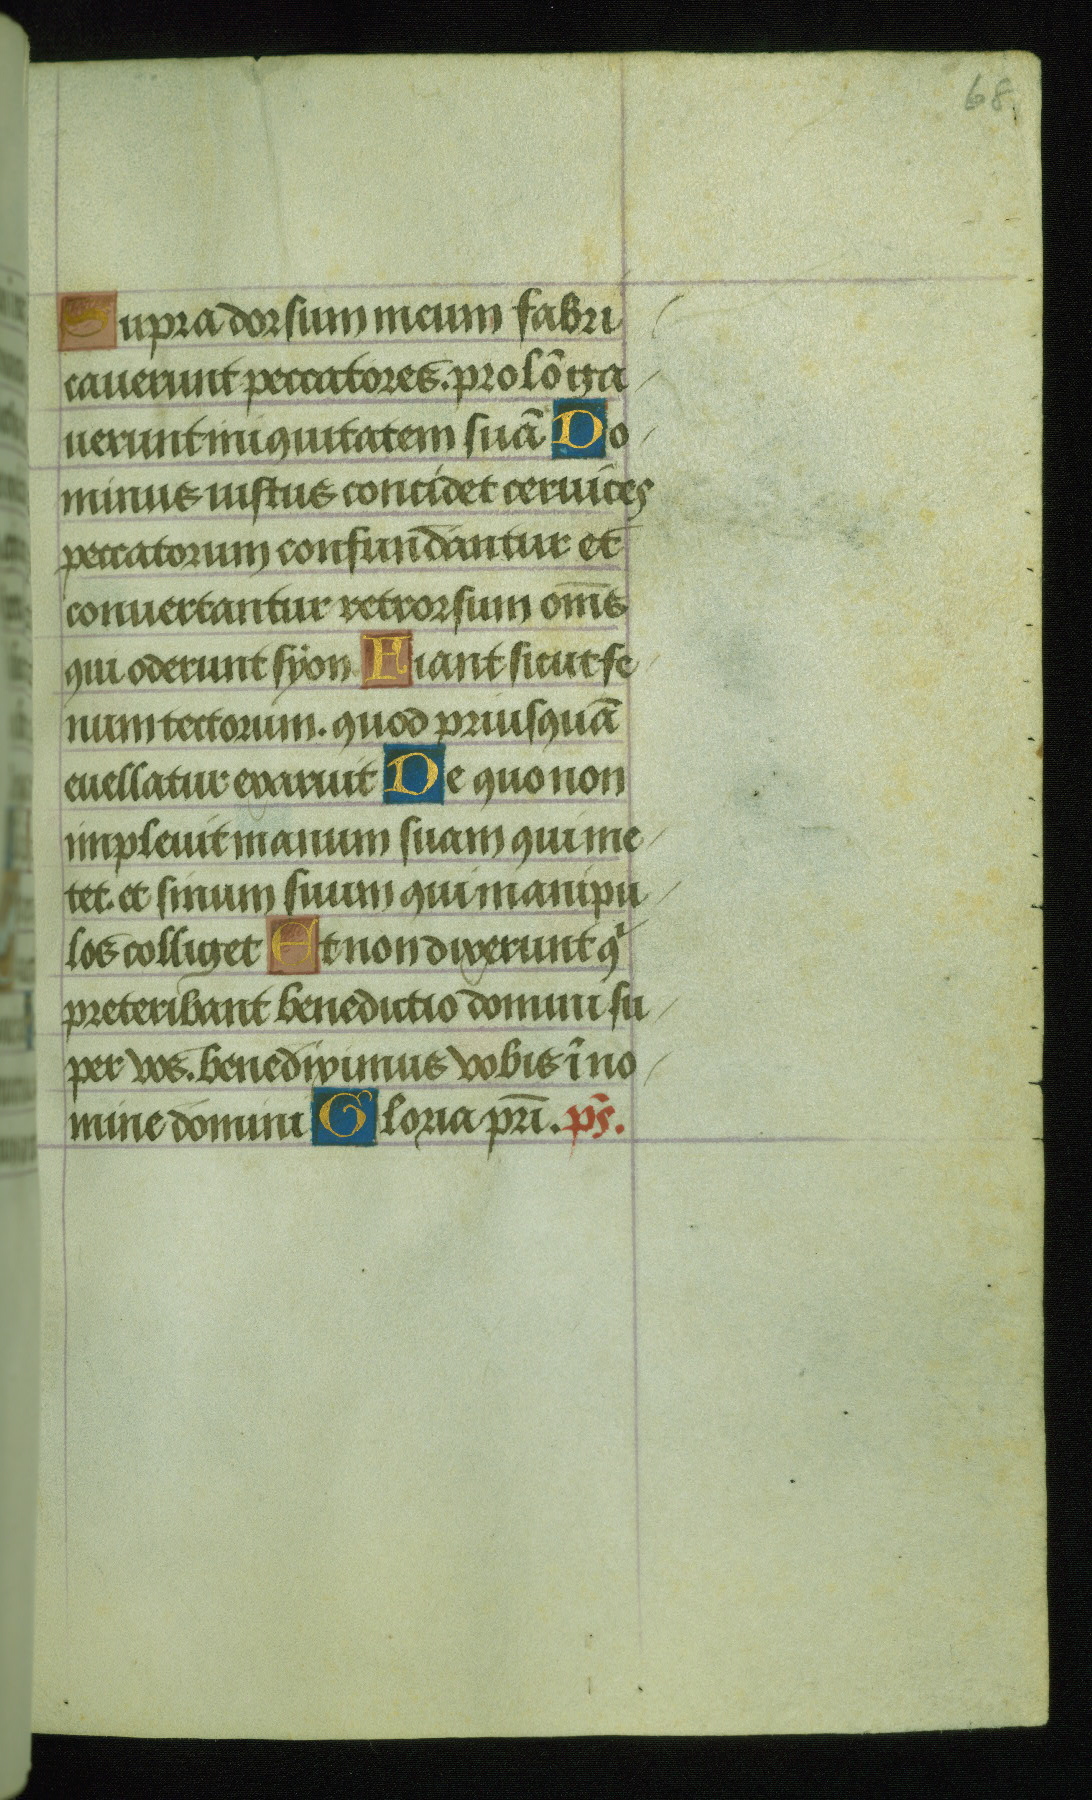 68
Supra dorsum meum fabri
cauerunt peccatores. prolōga
uerunt iniquitatem suā Do
minus iustus concidet ceruices
peccatorum confundantur et
conuertantur retrorsum om̄s
qui oderunt syon Fiant sicut fe
num tectorum. quod priusquā
euellatur exaruit De quo non
impleuit manum suam qui me
tet. et sinum suum qui manipu
los colliget Et non dixerunt qͥ
preteribant benedictio domini su
per vos. benediximus vobis ī no
mine domini Gloria pr̄i. ps̄.